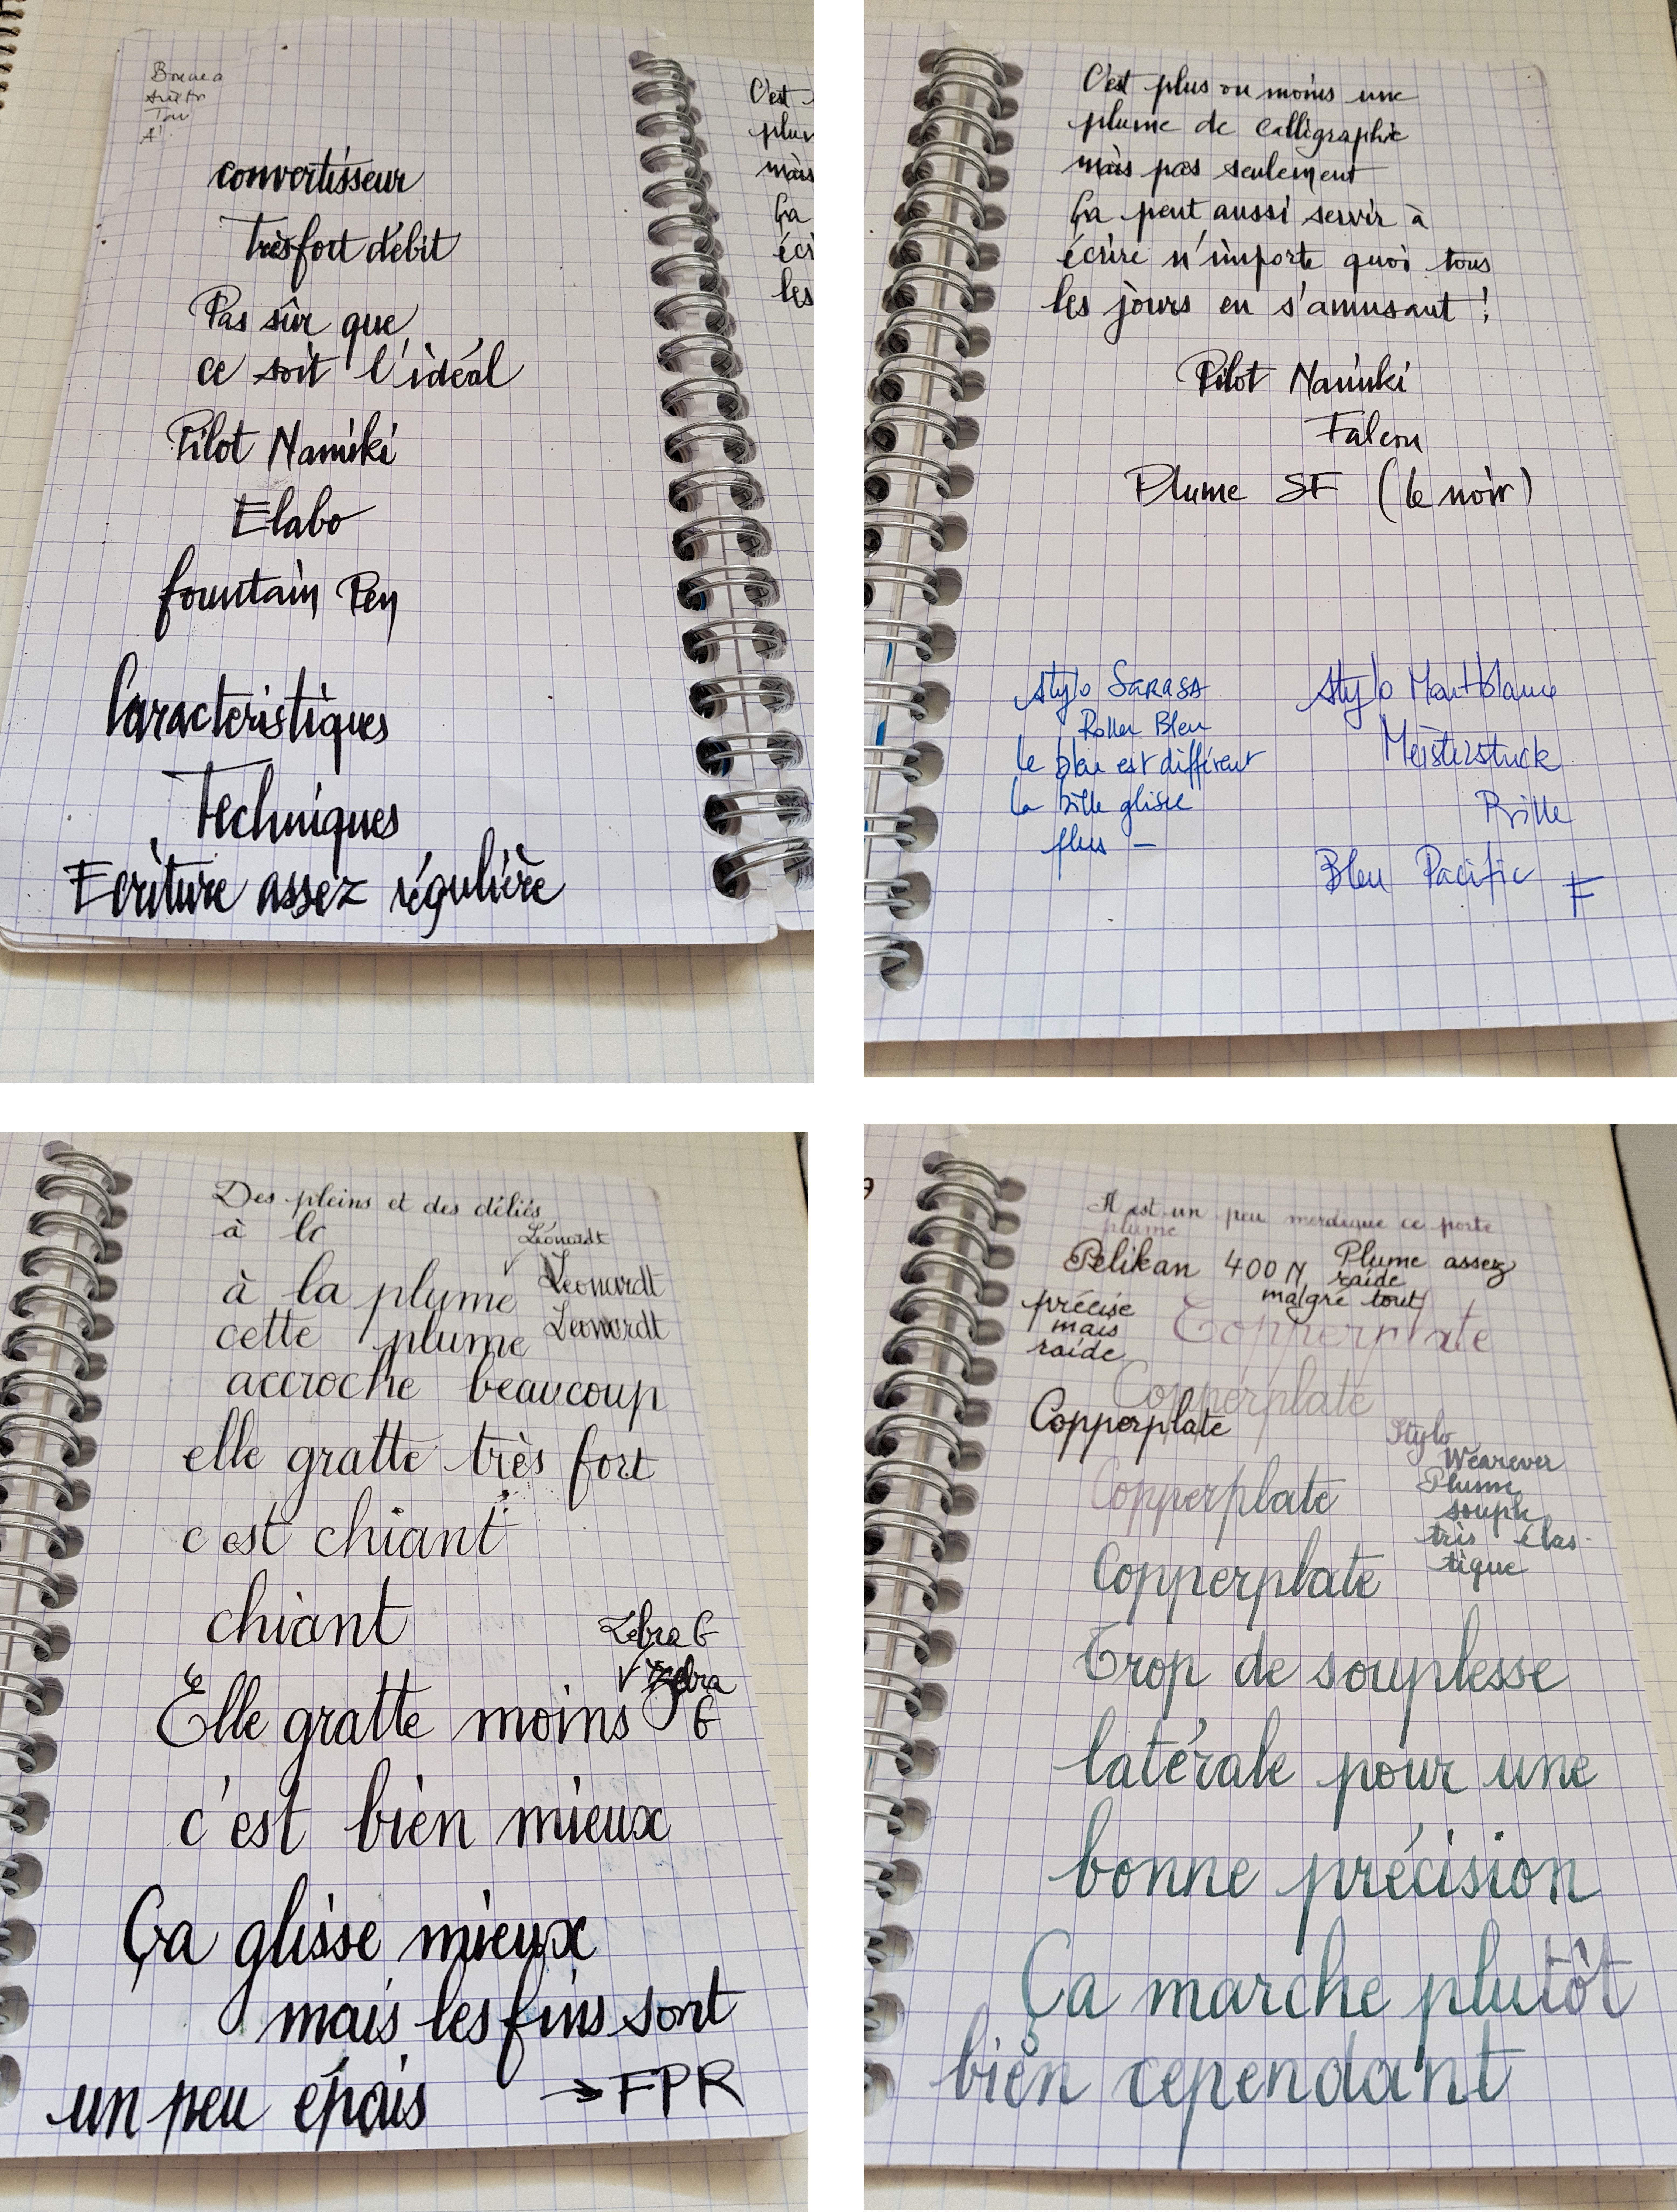 convertisseur
Très fort débit
Pas sûr que
ce soit l'idéal
Pilot Namiki
Elabo
fountain Pen
Caractéristiques
Techniques
Ecriture assez régulière
C'est
plum
mais
Ça
écri
les
C'est plus ou moins une
plume de calligraphie
mais pas seulement
Ça peut aussi servir à
écrire n'importe quoi tous
les jours en s'amusant !
Pilot Namiki
Falcon
Plume SF (le noir)
Stylo SARASA
Roller Bleu
le bleu est différent
la bille glisse
plus –
Stylo Montblanc
Meisterstuck
Bille
Bleu Pacific F
Des pleins et des déliés
à la
Léonardt
à la plume Leonardt
cette plume Leonardt
accroche beaucoup
elle gratte très fort
c est chiant
chiant
Zebra G
Zebra
Elle gratte moins G
c'est bien mieux
Ça glisse mieux
mais les fins sont
un peu épais → FPR
Il est un peu merdique ce porte
plume
Pelikan 400 N Plume assez
raide
malgré tout
précise
mais
raide
Copperplate
Copperplate
Copperplate
Stylo
Wearever
Plume
souple
très élas-
tique
Copperplate
Copperplate
Trop de souplesse
latérale pour une
bonne précision
Ça marche plutôt
bien cependant